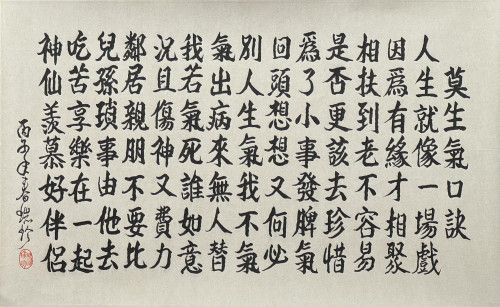 莫生氣口訣
人生就像一場戲
因爲有緣才相聚
相扶到老不容易
是否更該去珍惜
爲了小事發脾氣
回頭想想又何必
別人生氣我不氣
氣出病來無人替
我若氣死誰如意
況且傷神又費力
鄰居親朋不要比
兒孫瑣事由他去
吃苦享樂在一起
神仙羨慕好伴侶
丙子年春